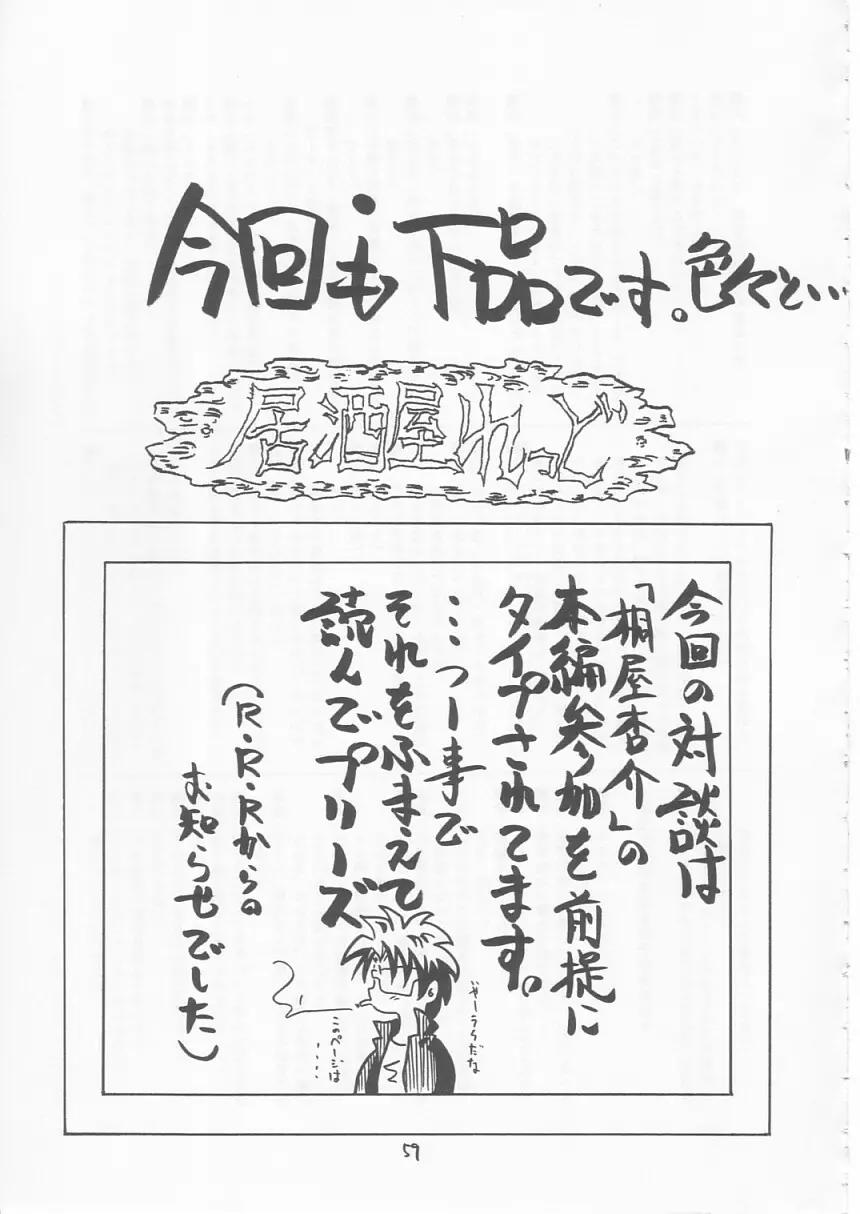 今回も下品です。色々と…
居酒屋れっど
今回の対談は
「桐屋杏介」の
本編参加を前提に
タイプされてます。
…つー事で
それをふまえて
読んでプリーズ
(R・R・Rからの
お知らせでした)
やーうらだな
このページは
……
59